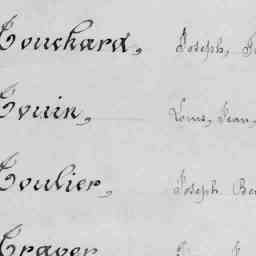 Touchard, Joseph,
Touin, Louis, Jean,
Toulier, Joseph
Traver